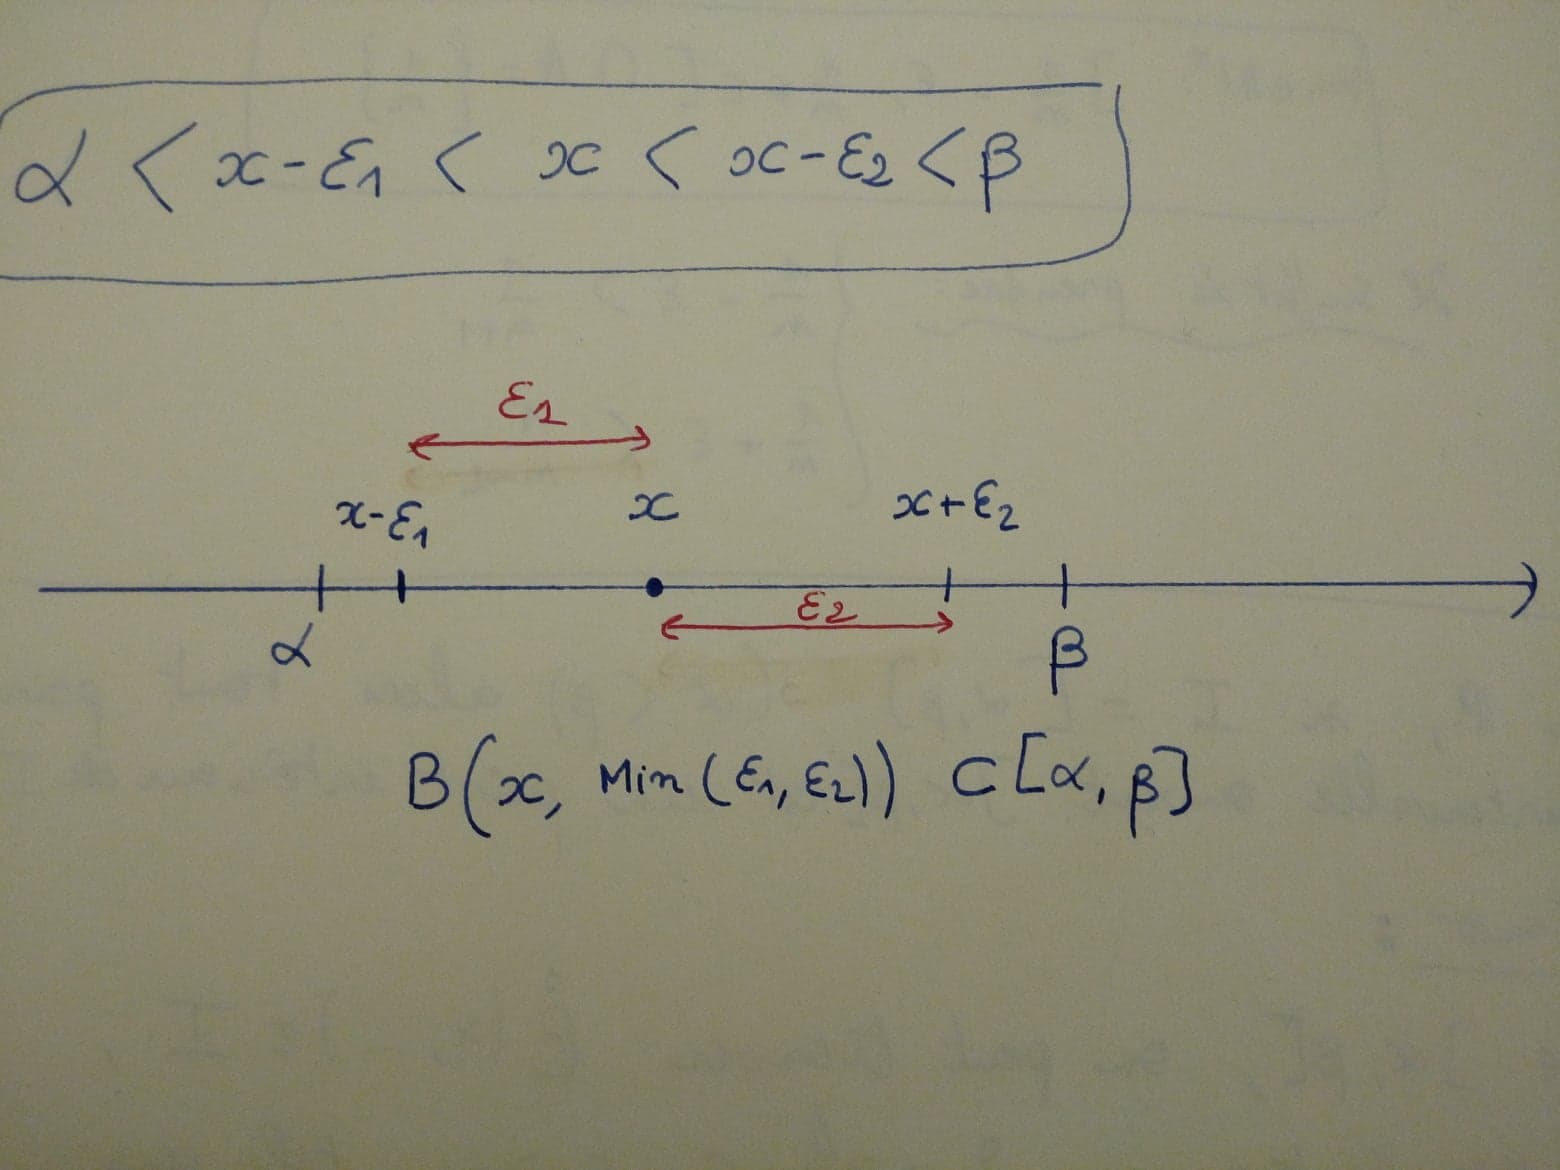 α < x-ε1 < x < x-ε2 < β
ε1
x-ε1 x x+ε2
ε2
α β
B(x, Min(ε1, ε2)) ⊂ [α, β]